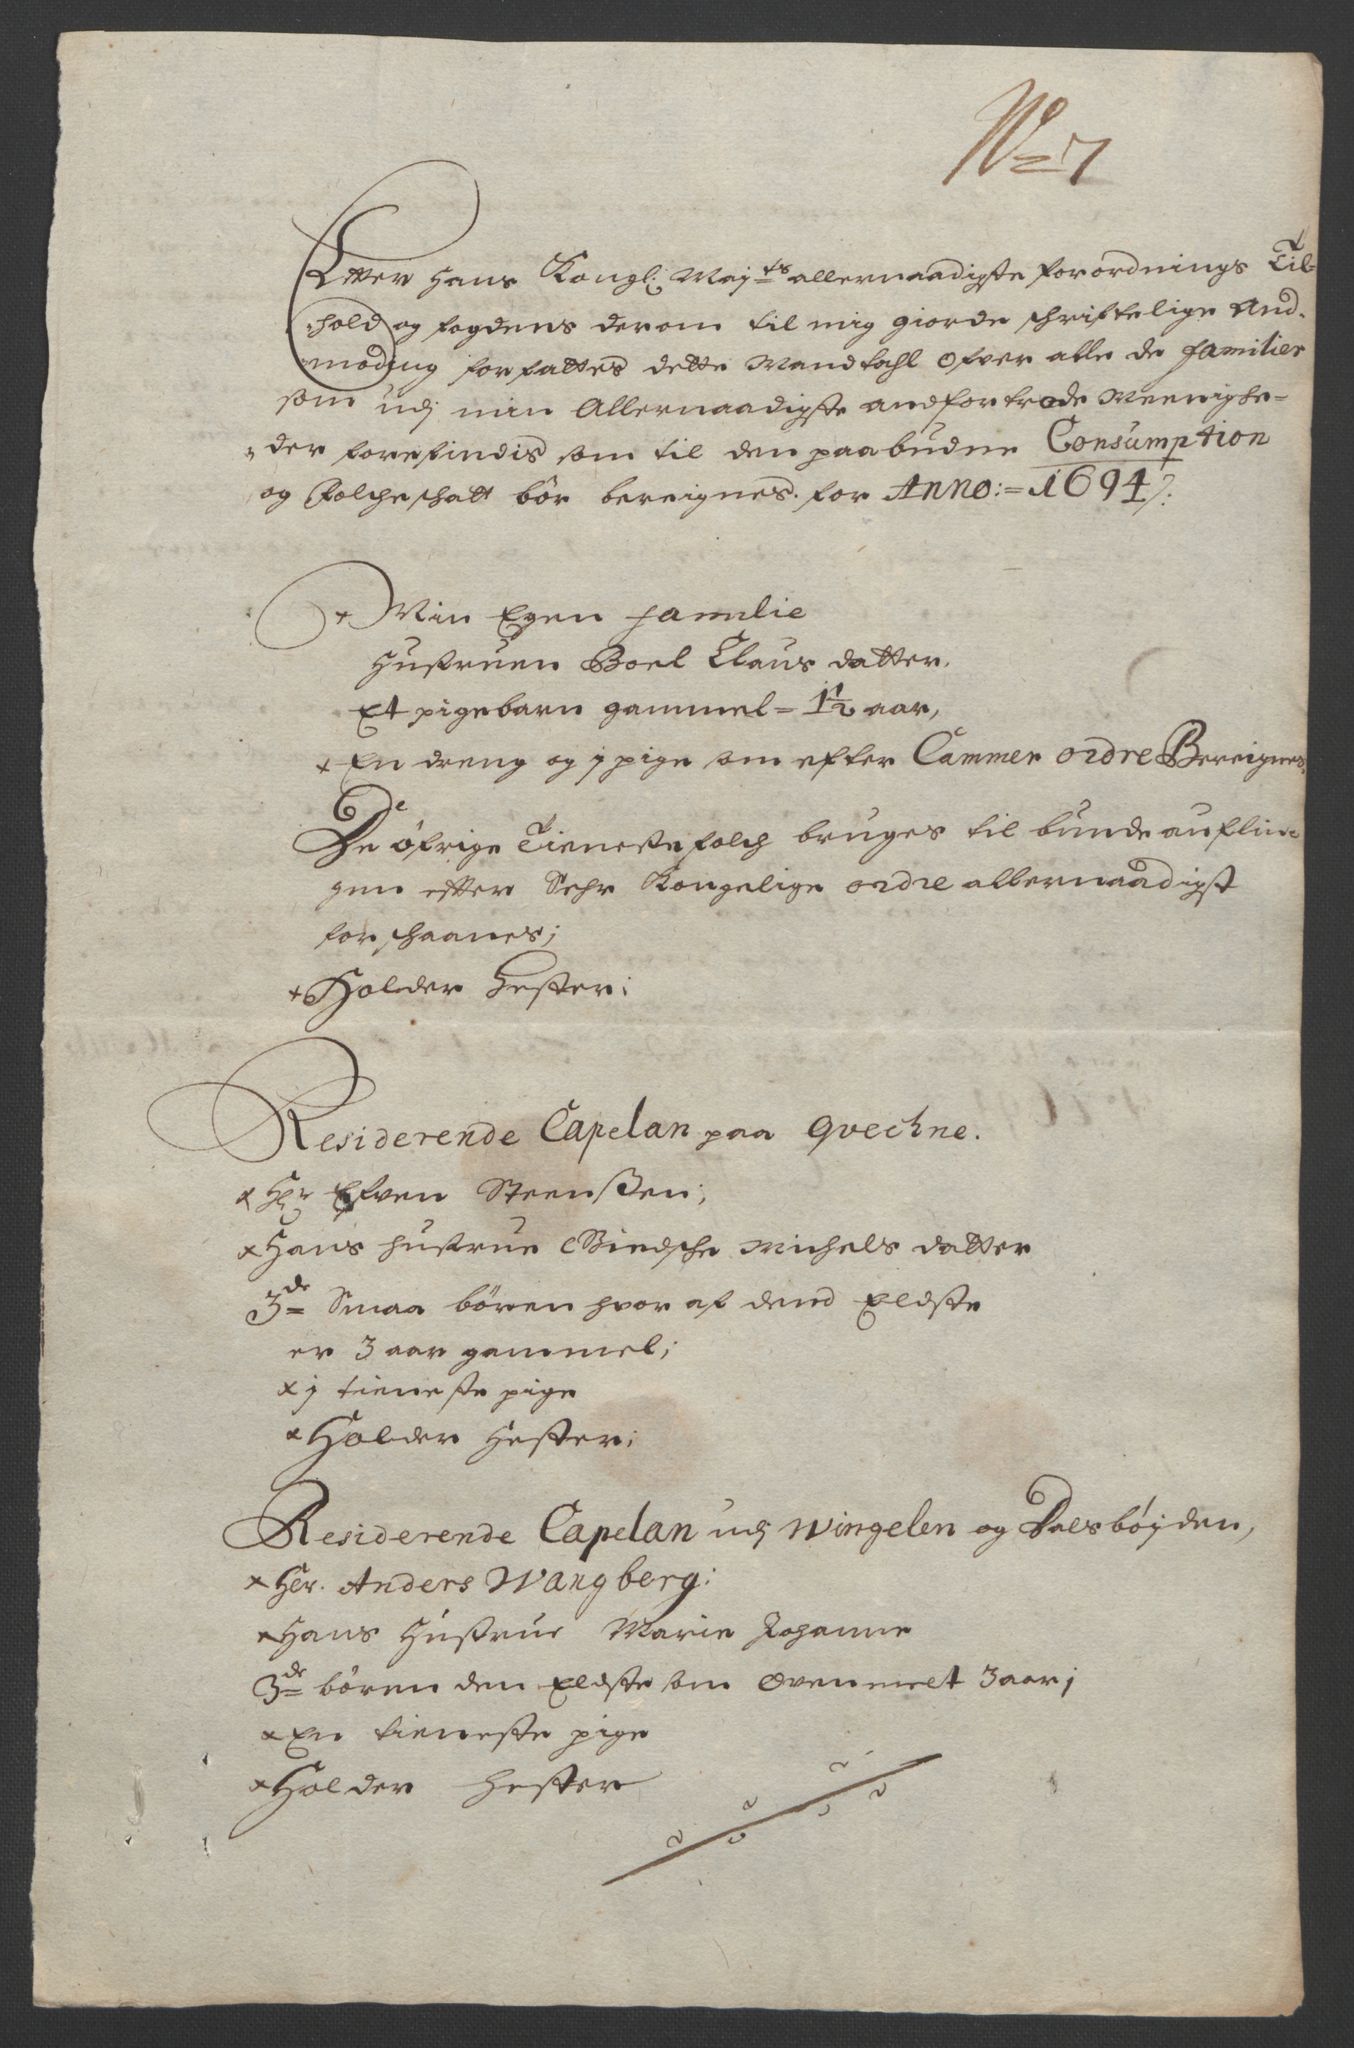 No 7
Etter Hans Kongl: Maj:ts allernaadigste forordnings Til-
hold og fogdens derom til mig giorde schriftelige And-
moding forfattes dette Mandtahl Ofver alle de familier
som udj min Allernaadigste andfortrode Meenighe-
der forefindis som til den paabudne Consumption
og Folcheschatt bör bereignes. for Anno:= 1694/:
+ Min Egen familie
Hustruen Boel Claus datter.
Et pigebarn gammel = 1½ aar,
+ En dreng og j pige som efter Cammer ordre Bereignes.
De öfrige Tienestefolch bruges til bunde auflin-
gen etter Sehr Kongelige ordre allernaadigst
forschaanes;
+ Holder Hester;
Residerende Capelan paa Qvechne.
x Hr Efven Steenßen;
x Hans hustrue Michels datter
3de Smaa bören hvor af dend Eldste
er 3 aar gammel;
x j tieneste pige
x Holder Hester;
Residerende Capelan udj Wingelen og Dalsböjden,
x Her. Anders Wangberg:
x Hans Hustrue Marie Johanne
3de bören den Eldste som Ovenmelt 3 aar;
x En tieneste pige
x Holder Hester